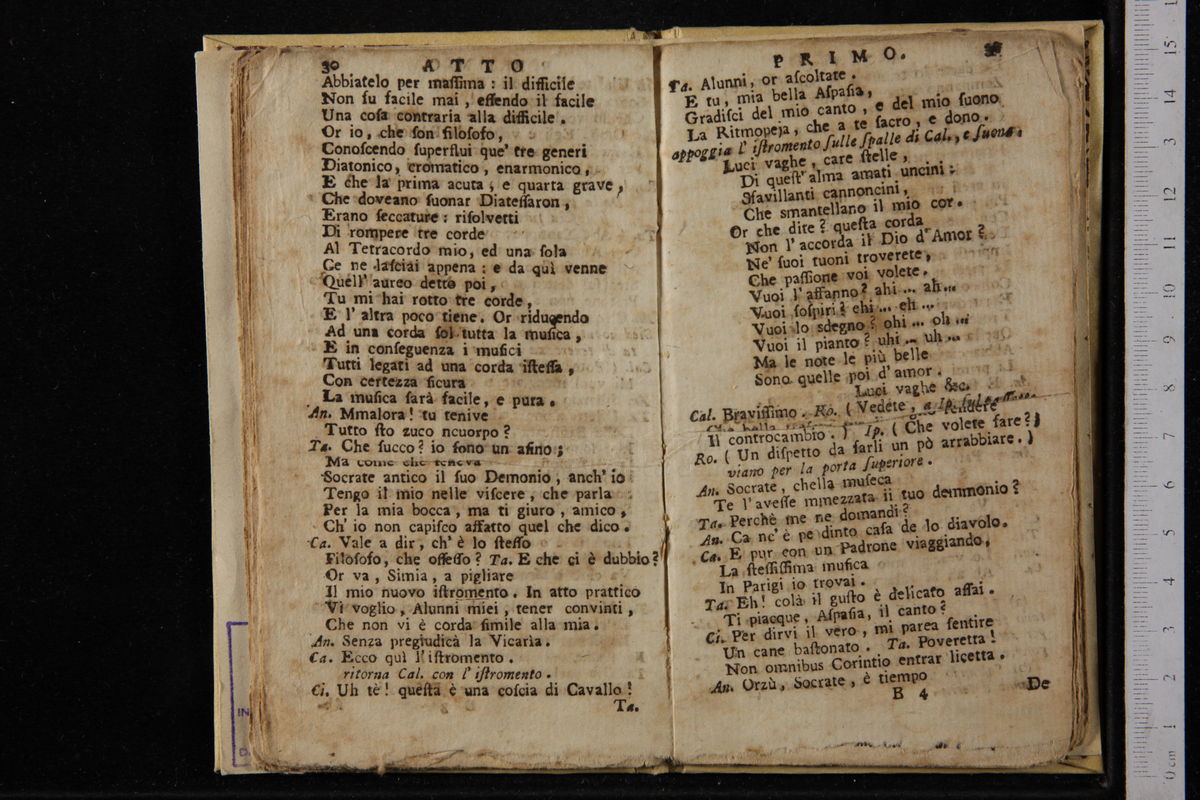 30 ATTO
Abbiatelo per maſſima : il difficile
Non fu facile mai , eſſendo il facile
Una coſa contraria alla difficile .
Or io , che ſon filoſofo ,
Conoſcendo ſuperflui que' tre generi
Diatonico, cromatico , enarmonico ,
E che la prima acuta , e quarta grave ,
Che doveano ſuonar Diateſſaron ,
Erano ſeccature : riſolvetti
Di rompere tre corde
Al Tetracordo mio, ed una ſola
Ce ne laſciai appena : e da quì venne
Quell' aureo detto poi ,
Tu mi hai rotto tre corde ,
E l' altra poco tiene. Or riducendo
Ad una corda ſol tutta la muſica ,
E in conſeguenza i muſici
Tutti legati ad una corda iſteſſa ,
Con certezza ſicura
La muſica ſarà facile , e pura .
An. Mmalora! tu tenive
Tutto ſto zuco ncuorpo ?
Ta. Che ſucco? io ſono un aſino ;
Ma come che teneva
Socrate antico il ſuo Demonio , anch' io
Tengo il mio nelle viſcere , che parla
Per la mia bocca , ma ti giuro , amico ,
Ch' io non capiſco affatto quel che dico .
Ca. Vale a dir, ch' è lo ſteſſo
Filoſofo, che oſſeſſo ? Ta. E che ci è dubbio?
Or va , Simia , a pigliare
Il mio nuovo iſtromento . In atto prattico
Vi voglio , Alunni miei , tener convinti ,
Che non vi è corda ſimile alla mia .
An. Senza pregiudicà la Vicarìa .
Ca. Ecco quì l'iſtromento .
ritorna Cal. con l' iſtromento .
Ci. Uh tè ! queſta è una coſcia di Cavallo !
Ta.
PRIMO.
Ta. Alunni, or aſcoltate .
E tu , mia bella Aſpaſia ,
Gradiſci del mio canto , e del mio ſuono
La Ritmopeja, che a te ſacro , e dono .
appoggia l' iſtromento ſulle ſpalle di Cal. , e ſuona .
Luci vaghe , care ſtelle ,
Di queſt' alma amati uncini :
Sfavillanti cannoncini ,
Che smantellano il mio cor .
Or che dite ? queſta corda
Non l' accorda il Dio d' Amor ?
Ne' ſuoi tuoni troverete ,
Che paſſione voi volete .
Vuoi l' affanno ? ahi ... ah ...
Vuoi ſoſpiri ? ehi ... eh ...
Vuoi lo sdegno ? ohi ... oh ...
Vuoi il pianto ? uhi ... uh ...
Ma le note le più belle
Sono quelle poi d' amor .
Luci vaghe &c.
Cal. Braviſſimo . Ro. ( Vedete ,
Il controcambio . ) Ip. ( Che volete fare? )
Ro. ( Un diſpetto da farli un pò arrabbiare . )
viano per la porta ſuperiore .
An. Socrate , chella muſeca
Te l'aveſſe mmezzata il tuo demmonio ?
Ta. Perchè me ne domandi ?
An. Ca nc' è pe dinto caſa de lo diavolo .
Ca. E pur con un Padrone viaggiando ,
La ſteſſiſſima muſica
In Parigi io trovai .
Ta. Eh ! colà il guſto è delicato aſſai .
Ti piacque , Aſpaſia , il canto ?
Ci. Per dirvi il vero , mi parea ſentire
Un cane baſtonato . Ta. Poveretta !
Non omnibus Corintio entrar licetta .
An. Orzù , Socrate , è tiempo
B 4 De